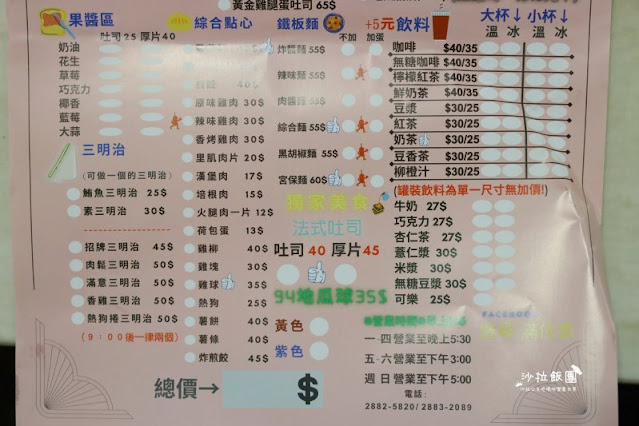 黃金雞腿蛋吐司 65$
果醬區
吐司25 厚片40
奶油
花生
草莓
巧克力
椰香
藍莓
大蒜
三明治
(可做一個的三明治)
鮪魚三明治 25$
素三明治 30$
招牌三明治 45$
肉鬆三明治 50$
滿意三明治 50$
香雞三明治 50$
熱狗捲三明治 50$
(9:00後一律兩個)
綜合點心
原味雞肉 30$
辣味雞肉 30$
香烤雞肉 30$
里肌肉片 20$
漢堡肉 17$
培根肉 15$
火腿肉一片 12$
荷包蛋 13$
雞柳 40$
雞塊 30$
雞球 35$
熱狗 25$
薯餅 40$
薯條 40$
炸煎餃 45$
鐵板麵
不加 加蛋
炸醬麵 55$
辣味麵 55$
肉醬麵 55$
綜合麵 55$
黑胡椒麵 55$
宮保麵 60$
獨家美食
法式吐司
吐司 40 厚片45
94地瓜球35$
黃色
紫色
+5元飲料
大杯↓ 小杯↓
溫 冰 溫 冰
咖啡 $40/35
無糖咖啡 $40/35
檸檬紅茶 $40/35
鮮奶茶 $40/35
豆漿 $30/25
紅茶 $30/25
奶茶 $30/25
豆香茶 $30/25
柳橙汁 $30/25
(罐裝飲料為單一尺寸無加價!)
牛奶 27$
巧克力 27$
杏仁茶 27$
薏仁漿 30$
米漿 30$
無糖豆漿 30$
可樂 25$
FACEBOOK
一-四 營業至晚上5:30
五-六 營業至下午3:00
週日 營業至下午5:00
電話:
2882-5820/ 2883-2089
總價→ $
沙拉飯團